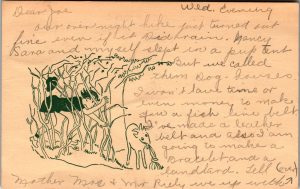 Dear Joe Wed. Evening
our overnight hike just turned out
fine even if it did rain. Nancy
Sara and myself slept in a pup tent
But we called
them Dog-houses
I won't have time or
even money to make
you a fish line belt
I've made a leather
belt and also I am
going to make a
Bracelet and a
Tell
Mother Mac & Mr we up with
(over)